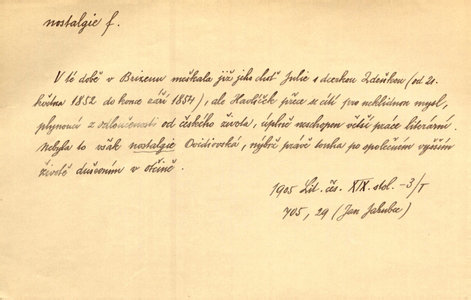 nostalgie f.
V té době v Brixenu meškala již jeho choť Julie s dcerkou Zdeňkou (od 21.
května 1852 do konce září 1854), ale Havlíček přece se cítí pro neklidnou mysl,
plynoucí z odloučenosti od českého života, úplně neschopen větší práce literární.
Nebyla to však nostalgie Ovidiovská, nýbrž pravá touha po společném vyšším
životě duševním v otčině.
1905 Lit. čes. XIX. stol. -3/I
705, 29 (Jan Jakubec)